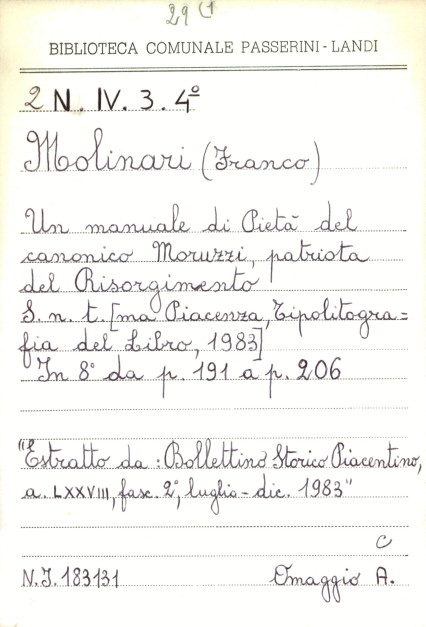 29 (1
BIBLIOTECA COMUNALE PASSERINI-LANDI
2 N. IV. 3. 4º
Molinari (Franco)
Un manuale di Pietà del
canonico Moruzzi, patriota
del Risorgimento
S. n. t. [ma Piacenza, Tipolitogra=
fia del Libro, 1983]
In 8° da p. 191 a p. 206
"Estratto da: Bollettino Storico Piacentino,
a. LXXVIII, fasc. 2°, luglio - dic. 1983"
C
N.I. 183131 Omaggio A.